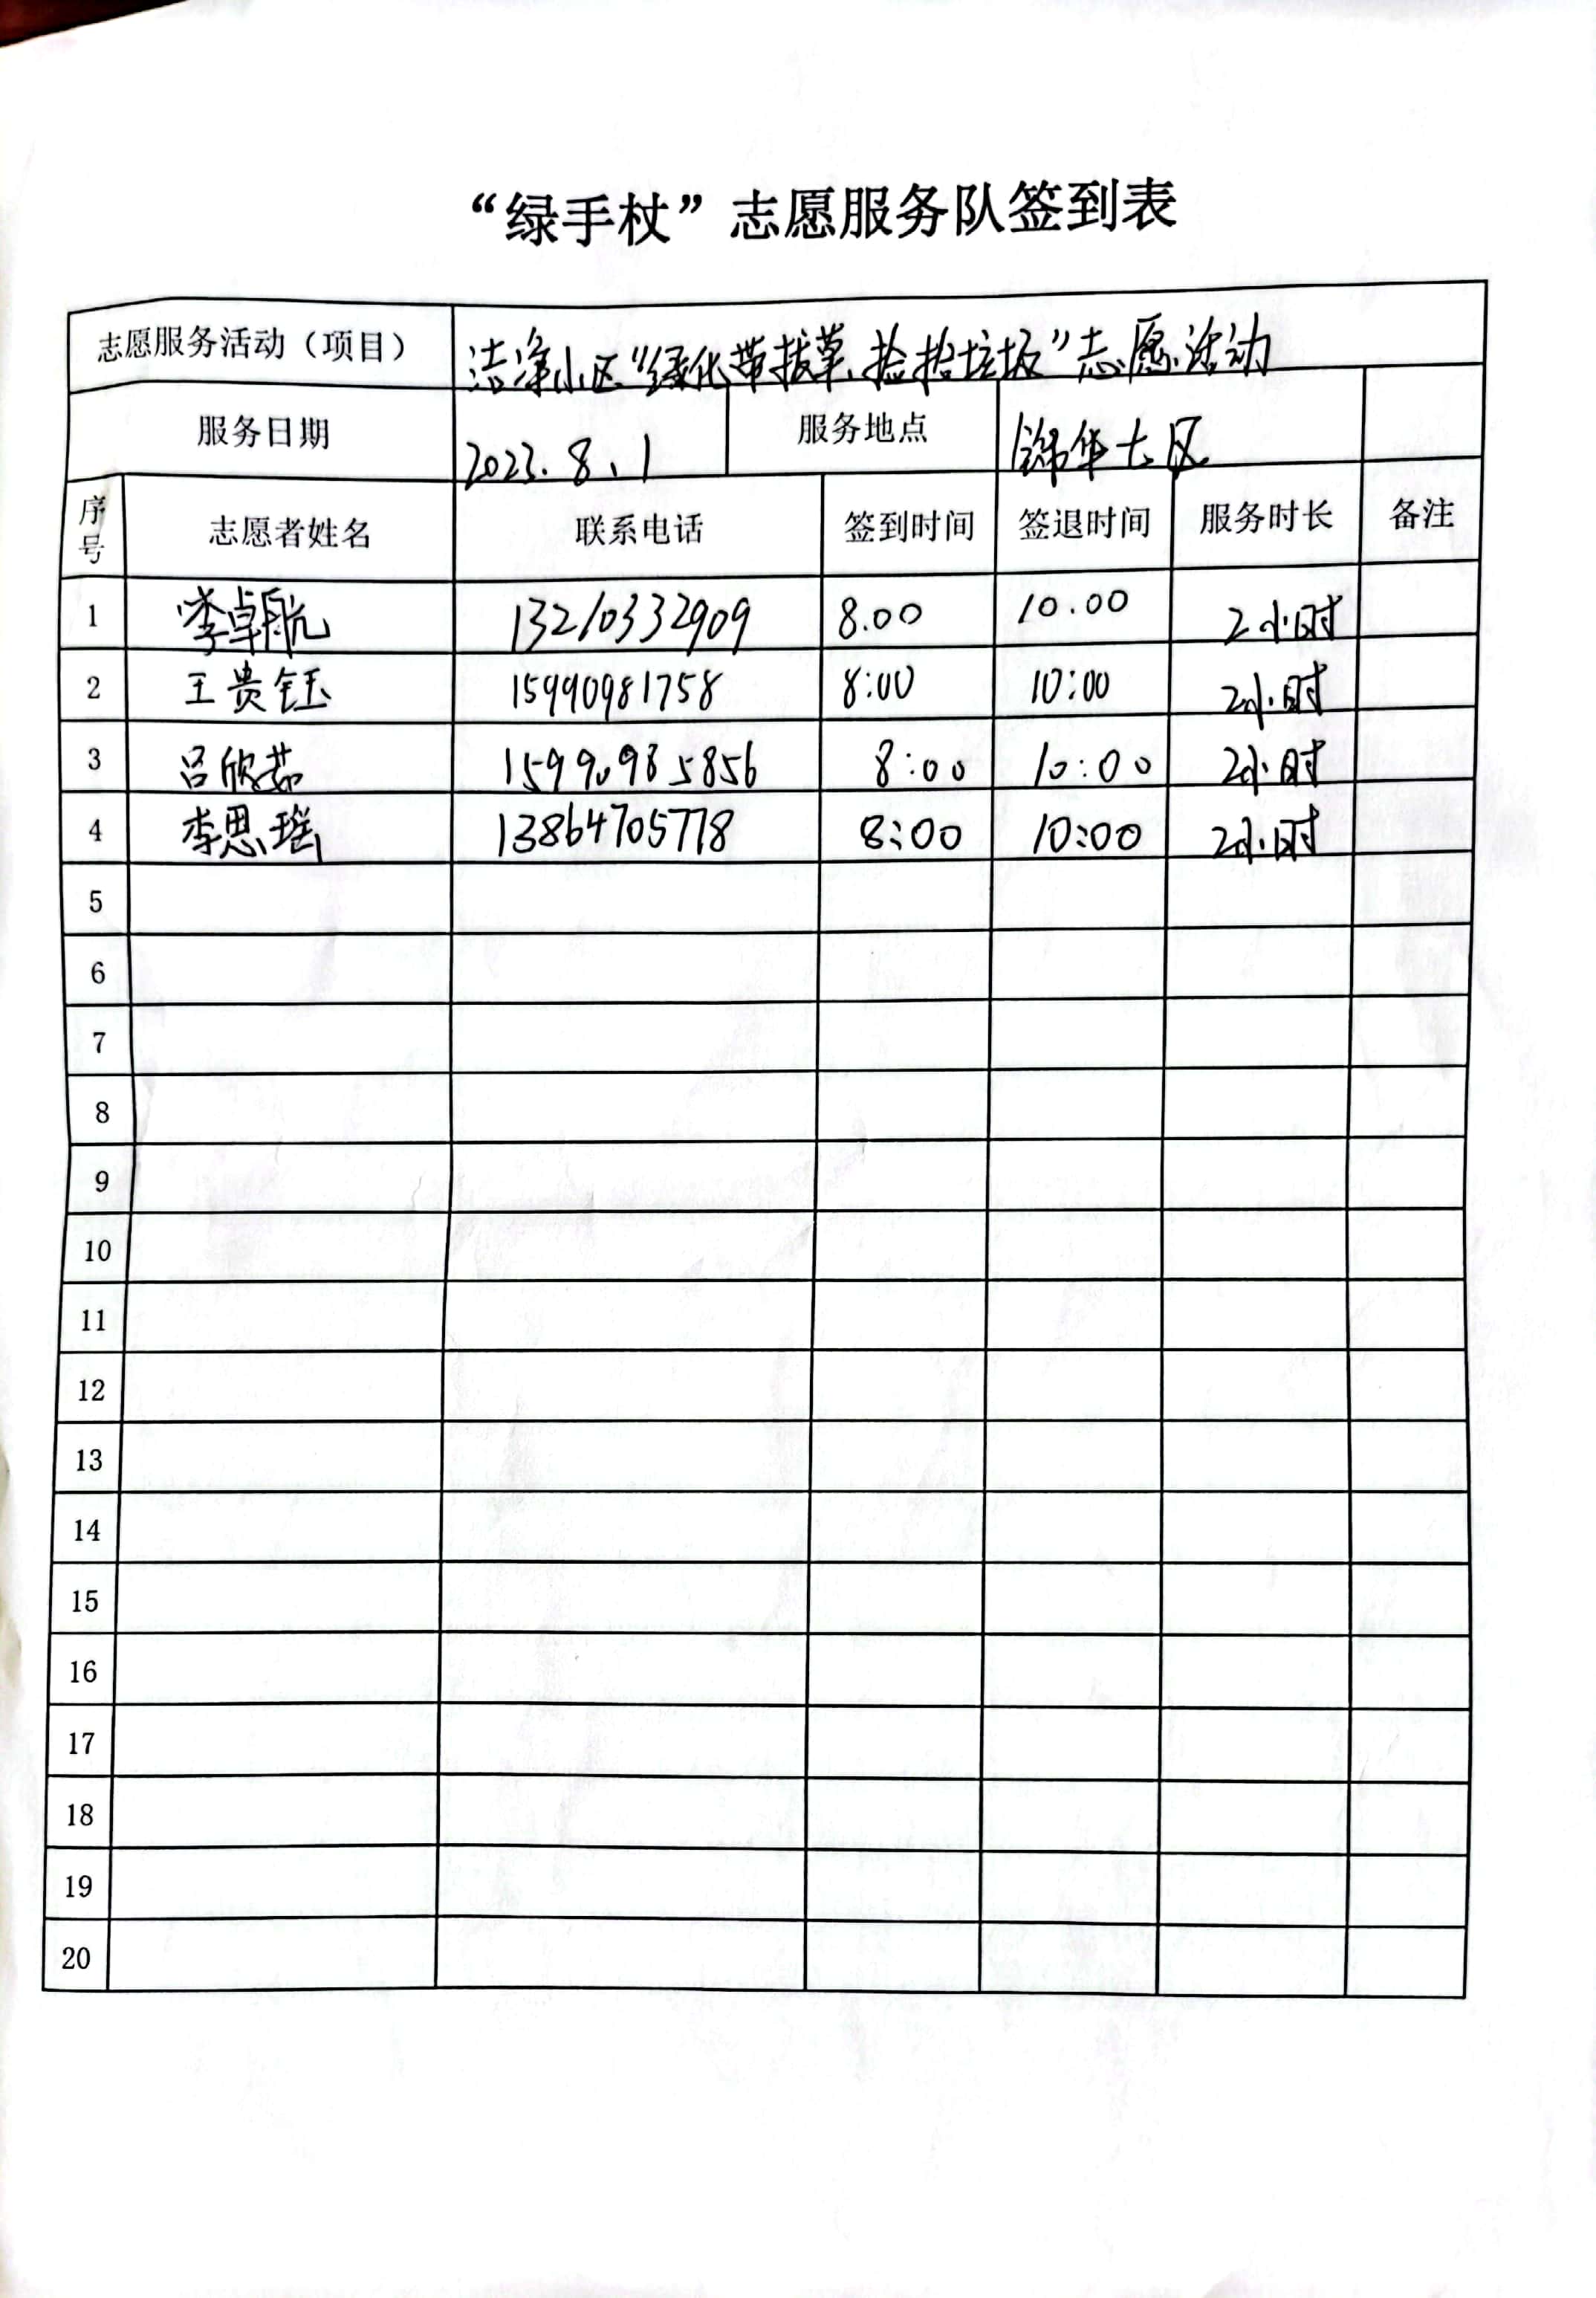 “绿手杖”志愿服务队签到表
志愿服务活动（项目） 洁净小区“绿化带拔草、捡拾垃圾”志愿活动
服务日期 2023.8.1 服务地点 锦华七区
序号 志愿者姓名 联系电话 签到时间 签退时间 服务时长 备注
1 李卓航 13210332909 8.00 10.00 2小时
2 王贵钰 15990981758 8:00 10:00 2小时
3 吕欣茹 15990985856 8:00 10:00 2小时
4 李思瑶 13864705778 8:00 10:00 2小时
5
6
7
8
9
10
11
12
13
14
15
16
17
18
19
20